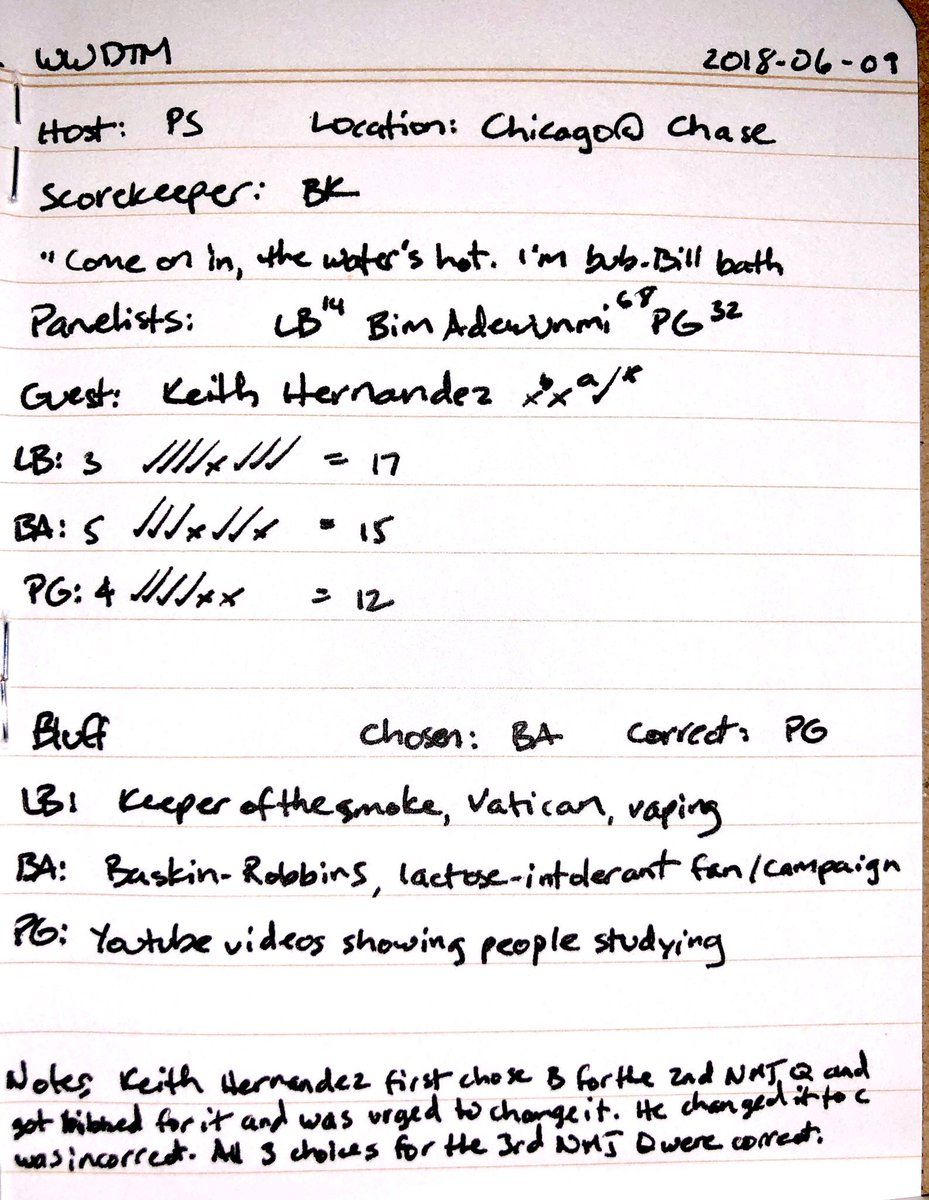 WWDTM 2018-06-09
Host: PS Location: Chicago@ Chase
Scorekeeper: BK
"Come on in, the water's hot. I'm bub-Bill bath
Panelists: LB 14 Bim Adewunmi 68 PG 32
Guest: Keith Hernandez xbxa✓*
LB: 3 ✓✓✓✓x✓✓✓ = 17
BA: 5 ✓✓✓x✓✓x = 15
PG: 4 ✓✓✓✓xx = 12
Bluff Chosen: BA Correct: PG
LB: Keeper of the smoke, Vatican, vaping
BA: Baskin-Robbins, lactose-intolerant fan/campaign
PG: Youtube videos showing people studying
Notes: Keith Hernandez first chose B for the 2nd NMJ Q and
got ribbed for it and was urged to change it. He changed it to C
was incorrect. All 3 choices for the 3rd NMJ Q were correct.